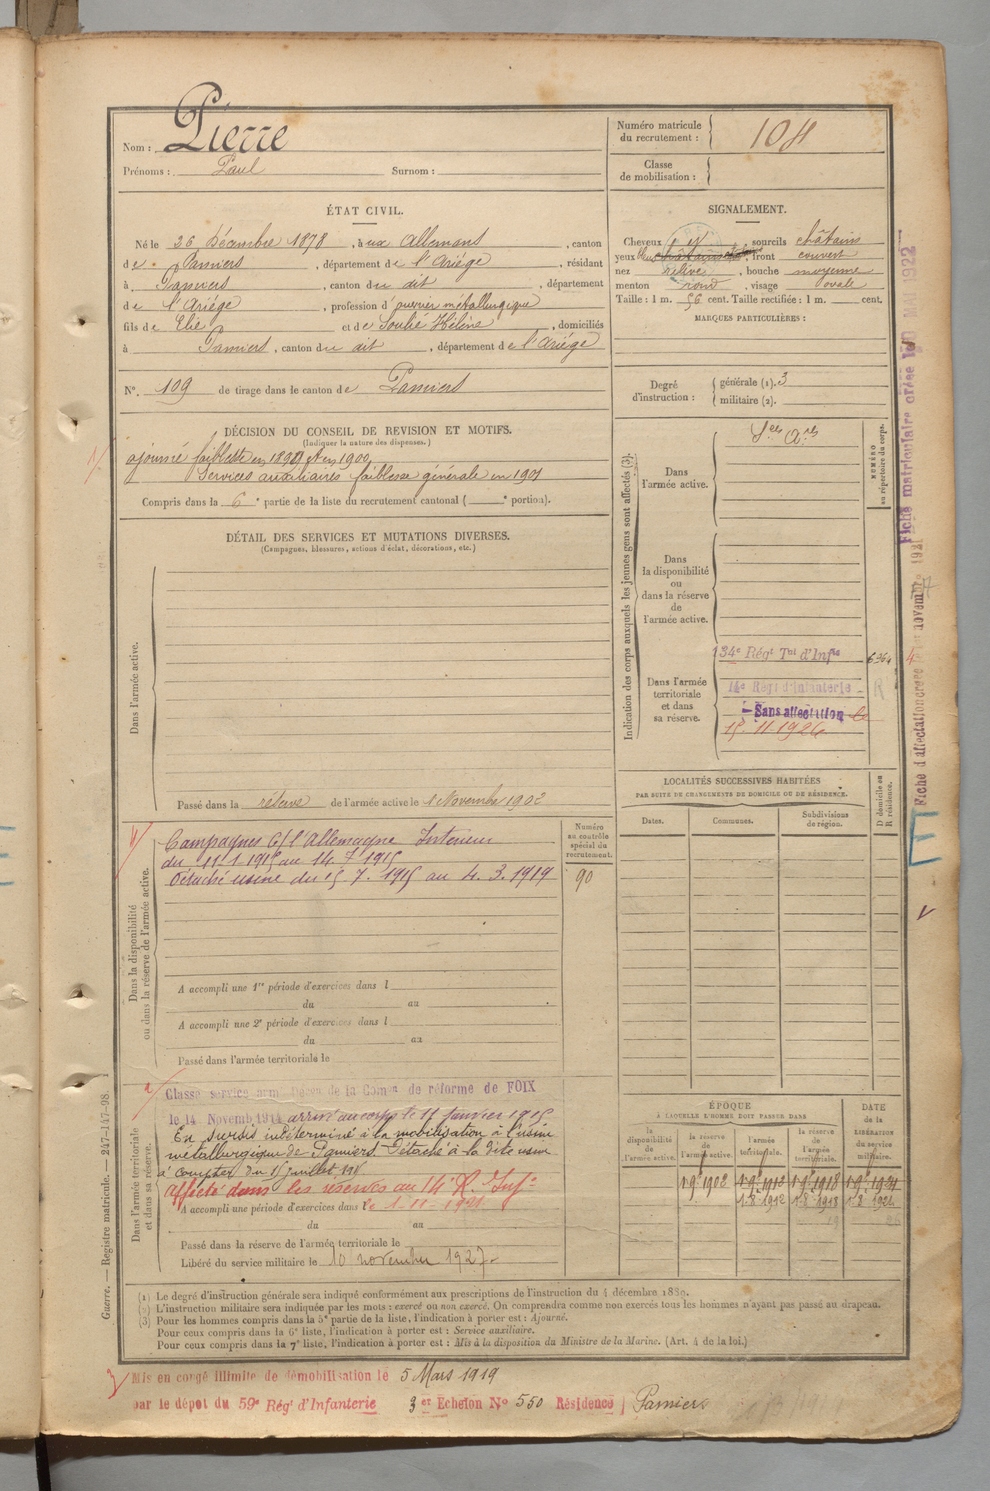 Nom : Pierre
Prénoms : Paul Surnom :
Numéro matricule du recrutement : 104
Classe de mobilisation :
ÉTAT CIVIL.
Né le 26 Décembre 1878, à aux Allemans, canton
de Pamiers, département de l'Ariège, résidant
à Pamiers, canton du dit, département
de l'Ariège, profession d'ouvrier métallurgique
fils de Elie et de Soulié Hélène, domiciliés
à Pamiers, canton du dit, département de l'Ariège
N°. 109 de tirage dans le canton de Pamiers
SIGNALEMENT.
Cheveux sourcils châtains
yeux bleus front couvert
nez relevé, bouche moyenne
menton rond, visage ovale
Taille : 1 m. 56 cent. Taille rectifiée : 1 m. cent.
MARQUES PARTICULIÈRES :
Degré d'instruction : générale (1). 3
militaire (2).
DÉCISION DU CONSEIL DE REVISION ET MOTIFS.
(Indiquer la nature des dispenses.)
ajourné faiblesse en 1899 et en 1900,
Services auxiliaires faiblesse générale en 1901
Compris dans la 6e partie de la liste du recrutement cantonal ( e portion).
DÉTAIL DES SERVICES ET MUTATIONS DIVERSES.
(Campagnes, blessures, actions d'éclat, décorations, etc.)
Dans l'armée active.
Passé dans la réserve de l'armée active le 1 Novembre 1902
Indication des corps auxquels les jeunes gens sont affectés (3).
NUMÉRO au répertoire du corps.
Dans l'armée active.
Dans la disponibilité ou dans la réserve de l'armée active.
Dans l'armée territoriale et dans sa réserve.
134e Régt Tal d'Infie
14e Régt d'Infanterie
Sans affectation le
15.11.1926
LOCALITÉS SUCCESSIVES HABITÉES
PAR SUITE DE CHANGEMENTS DE DOMICILE OU DE RÉSIDENCE.
Dates. Communes. Subdivisions de région. D domicile ou R résidence.
Dans la disponibilité ou dans la réserve de l'armée active.
Numéro au contrôle spécial du recrutement.
90
Campagnes C/ l'Allemagne Intérieur
du 11.1.1915 au 14.7.1915
Détaché usine du 15.7.1915 au 4.3.1919
A accompli une 1re période d'exercices dans l
du au
A accompli une 2e période d'exercices dans l
du au
Passé dans l'armée territoriale le
Dans l'armée territoriale et dans sa réserve.
Classé service arm. Décon de la Comon de réforme de FOIX
le 14 Novemb 1914 arrivé au corps le 11 Janvier 1915
En sursis indéterminé à la mobilisation à l'usine
métallurgique de Pamiers. Détaché à la dite usine
à compter du 15 juillet 1915
Affecté dans les réserves au 14e R. Inf.
A accompli une période d'exercices dans l
le 1-11-1921.
du au
Passé dans la réserve de l'armée territoriale le
Libéré du service militaire le 10 novembre 1927.
ÉPOQUE
À LAQUELLE L'HOMME DOIT PASSER DANS
la disponibilité de l'armée active. la réserve de l'armée active. l'armée territoriale. la réserve de l'armée territoriale.
DATE de la LIBÉRATION du service militaire.
1-9-1902
1-8-1912 1-8-1918
(1) Le degré d'instruction générale sera indiqué conformément aux prescriptions de l'instruction du 4 décembre 1889.
(2) L'instruction militaire sera indiquée par les mots : exercé ou non exercé. On comprendra comme non exercés tous les hommes n'ayant pas passé au drapeau.
(3) Pour les hommes compris dans la 5e partie de la liste, l'indication à porter est : Ajourné.
Pour ceux compris dans la 6e liste, l'indication à porter est : Service auxiliaire.
Pour ceux compris dans la 7e liste, l'indication à porter est : Mis à la disposition du Ministre de la Marine. (Art. 4 de la loi.)
Mis en congé illimité de démobilisation le 5 Mars 1919
par le dépôt du 59e Régt d'Infanterie 3er Echelon No 550 Résidence Pamiers
Guerre. — Registre matricule. — 247-147-98.